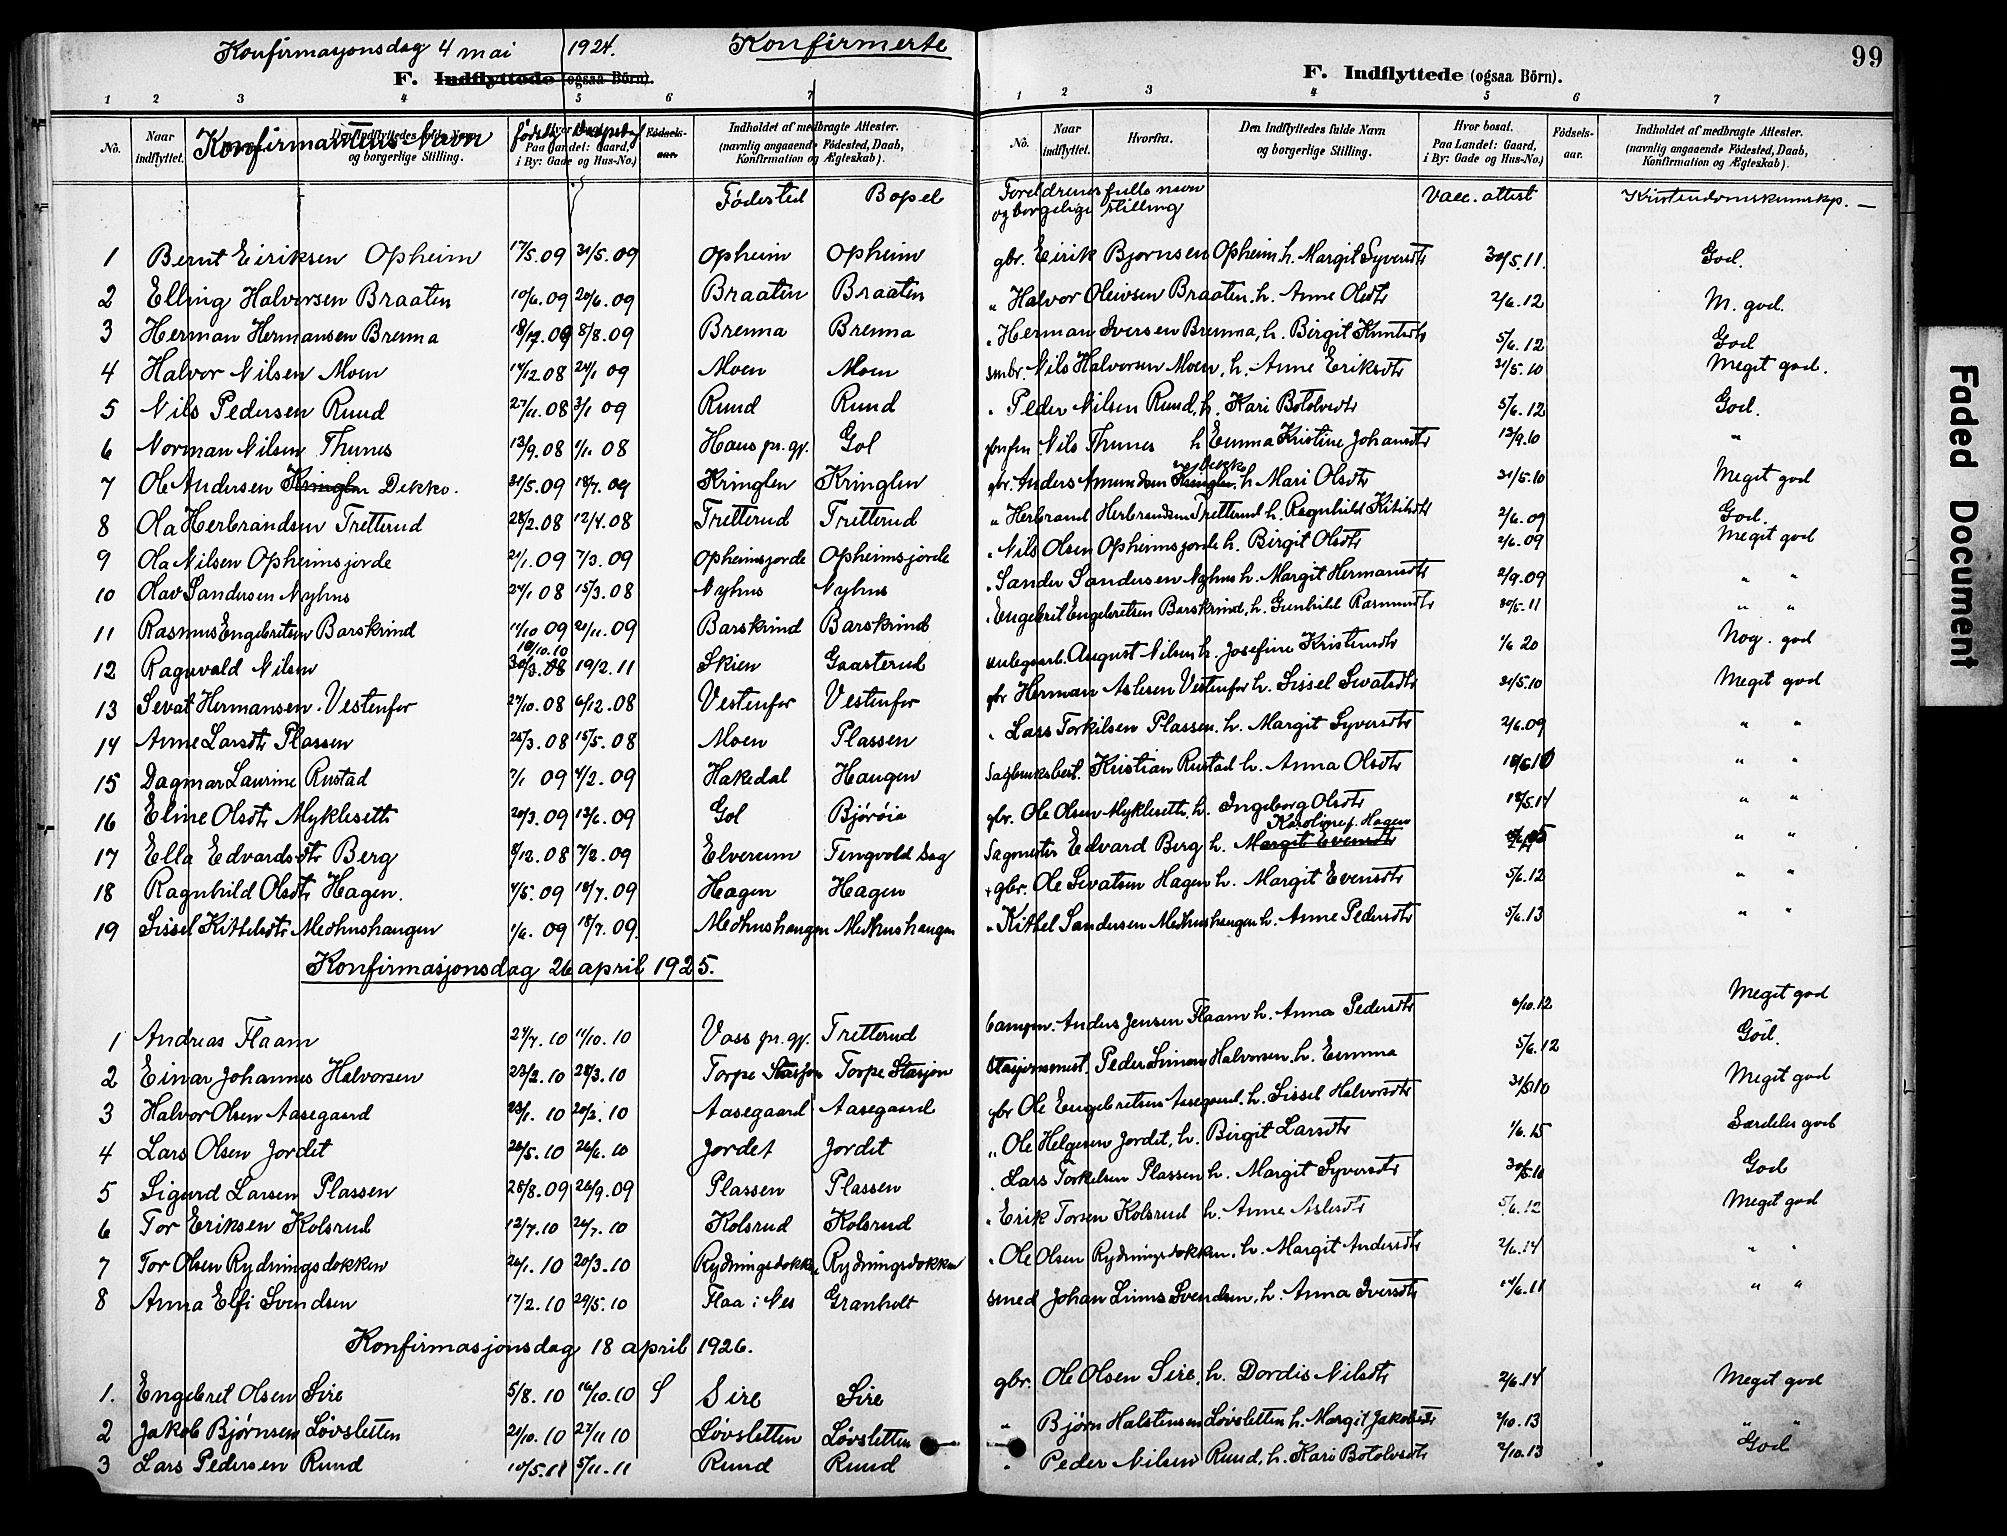 Konfirmasjonsdag 4 mai 1924. Konfirmerte
F. Indflyttede (ogsaa Börn).
1 2 3 4 5 6 7
No. Naar indflyttet. Konfirmantens Navn født Daapsdag Fødselsaar. Indholdet af medbragte Attester. (navnlig angaaende Födested, Daab, Konfirmation og Ægteskab).
Den Indflyttedes fulde Navn og borgerlige Stilling. Paa Landet: Gaard, i By: Gade og Hus-No.)
Fødested Bopel
1 Bernt Eiriksen Opheim 17/5.09 31/5.09 Opheim Opheim
2 Elling Halvorsen Braaten 10/6.09 20/6.09 Braaten Braaten
3 Herman Hermansen Brenna 18/7.09 8/8.09 Brenna Brenna
4 Halvor Nilsen Moen 14/12.08 24/1 09 Moen Moen
5 Nils Pedersen Ruud 27/11.08 3/1 09 Ruud Ruud
6 Norman Nilsen Thunes 13/9.08 1/11 08 Haus pr.gj. Gol
7 Ole Andersen Kringlen Dekko. 31/5.09 18/7.09 Kringlen Kringlen
8 Ola Herbrandsen Tretterud 28/2.08 12/4.08 Tretterud Tretterud
9 Ola Nilsen Opheimsjorde 21/1.09 7/3.09 Opheimsjorde Opheimsjorde
10 Olav Sandersen Nyhus 24/1 08 15/3.08 Nyhus Nyhus
11 Rasmus Engebretsen Barskrind 14/10 09 21/11.09 Barskrind Barskrind
18/10.10
12 Ragnvald Nilsen 30/3.08 19/2.11 Skien Gaasterud
13 Sevat Hermansen Vestenfor 27/10.08 6/12.08 Vestenfor Vestenfor
14 Anne Larsdtr Plassen 25/3.08 15/5.08 Moen Plassen
15 Dagmar Laurine Rustad 7/1 09 4/2.09 Hakedal Haugen
16 Eline Olsdtr Myklesett 20/3.09 13/6.09 Gol Bjørøia
17 Ella Edvardsdtr Berg 8/12.08 7/2.09 Elverum Tingvold Sag
18 Ragnhild Olsdtr Hagen. 4/5.09 18/7.09 Hagen Hagen
19 Sissel Kittelsdtr Medhushaugen 1/6.09 18/7.09. Medhushaugen Medhushaugen
Konfirmasjonsdag 26 april 1925.
1 Andreas Flaam 27/7.10 11/10.10 Voss pr.gj. Tretterud
2 Einar Johannes Halvorsen 23/2.10 28/3.10 Torpe Stasjon Torpe Stasjon
3 Halvor Olsen Aasegaard 23/1.10 20/2.10 Aasegaard Aasegaard
4 Lars Olsen Jordet 20/5.10 26/6.10 Jordet Jordet
5 Sigurd Larsen Plassen 28/8.09 26/9.09 Plassen Plassen
6 Tor Eriksen Kolsrud 12/7.10 24/7.10 Kolsrud Kolsrud
7 Tor Olsen Rydningsdokken 26/1.10 20/3.10 Rydningsdokken Rydningsdokken
8 Anna Elfi Svendsen 17/2.10 29/5.10 Flaa i Nes Granholt
Konfirmasjonsdag 18 april 1926.
1. Engebret Olsen Sire 5/8.10 16/10.10 S Sire Sire
2 Jakob Bjørnsen Løvsletten 21/10.10 27/11 10 Løvsletten Løvsletten
3 Lars Pedersen Ruud 10/5.11 5/11.11 Ruud Ruud
99
F. Indflyttede (ogsaa Börn).
1 2 3 4 5 6 7
No. Naar indflyttet. Hvorfra. Den Indflyttedes fulde Navn og borgerlige Stilling. Hvor bosat. Paa Landet: Gaard, i By: Gade og Hus-No.) Fødselsaar. Indholdet af medbragte Attester. (navnlig angaaende Födested, Daab, Konfirmation og Ægteskab).
Foreldrenes fulle navn og borgelige stilling Vacc. attest Kristendomskunnskp. —
gbr. Eirik Bjornsen Opheim h. Margit Syversdtr 30/5.11. God.
" Halvor Oleivsen Braaten, h. Anne Olsdtr 2/6.12 M. god.
" Herman Iversen Brenna, h. Birgit Knutsdtr 5/6.12 God
smbr. Nils Halvorsen Moen, h. Anne Eriksdtr 31/5.10 Meget god.
" Peder Nilsen Ruud, h. Kari Botolvsdtr 5/6.12 God.
Nils Thunes h Emma Kristine Johansdtr 13/9.10 "
gbr. Anders Amundsen Kringlen Dekko h Mari Olsdtr 31/5.10 Meget god
" Herbrand Herbrandsen Tretterud h. Ragnhild Kittilsdtr 2/6.09 God.
" Nils Olsen Opheimsjorde h. Birgit Olsdtr 2/6.09 Meget god
" Sander Sandersen Nyhus h. Margit Hermansdtr 2/9.09 " "
" Engebrit Engebretsen Barskrind, h. Gunhild Rasmusdtr 30/5.11 " "
August Nilsen h. Josefine Kristensdtr 1/6 20 Nog. god
gbr Herman Aslesen Vestenfor h. Sissel Sevatsdtr 31/5.10 Meget god
" Lars Torkilsen Plassen. h. Margit Syversdtr 2/6.09 " "
Sagbruksbest. Kristian Rustad h. Anna Olsdtr " "
gbr. Ole Olsen Myklesett, h. Ingeborg Olsdtr 18/5.14 " "
Karoline f. Hagen
Sagmester Edvard Berg h. Margit Evensdtr " "
gbr. Ole Sevatsen Hagen h. Margit Evensdtr 5/6.12 " "
" Kittel Sandersen Medhushaugen h. Anne Pedersdtr 5/6.13 " "
Anders Jensen Flaam h. Anna Pedersdtr 6/10.12 Meget god
Stasjonsmest. Peder Simon Halvorsen. h. Emma 5/6.12 God.
gbr Ole Engebretsen Aasegaard. h. Sissel Halvorsdtr 31/5.10 Meget god
" Ole Helgesen Jordet, h. Birgit Larsdtr 1/6.15 Særdeles god
" Lars Torkelsen Plassen h. Margit Syversdtr 30/5.11 God
" Erik Torsen Kolsrud h. Anne Aslesdtr 5/6.12 Meget god
" Ole Olsen Rydningsdokken, h. Margit Andersdtr 2/6.14 " "
Smed Johan Linus Svendsen, h. Anna Iversdtr 14/6.11 " "
gbr. Ole Olsen Sire, h. Dordis Nilsdtr 2/6.14 Meget god
" Bjørn Halstensen Løvsletten h. Margit Jakobsdtr 2/10.13 " "
" Peder Nilsen Ruud, h. Kari Botolvsdtr 2/10.13 God
Faded Document